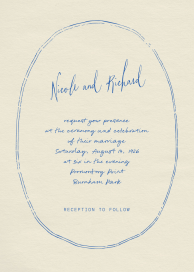 Nicole and Richard
request your presence
at the ceremony and celebration
of their marriage
Saturday, August 14, 
at six in the evening
Promontory Point
Burnham Park
RECEPTION TO FOLLOW